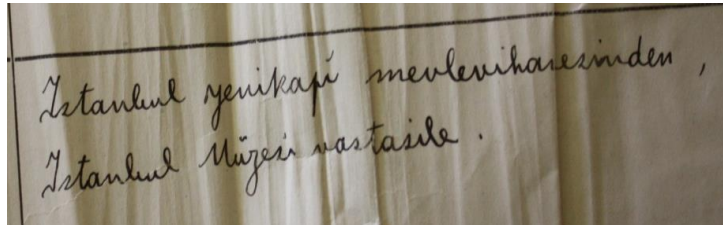 İstanbul yenikapı mevlevihanesinden,
İstanbul Müzesi vastasile.